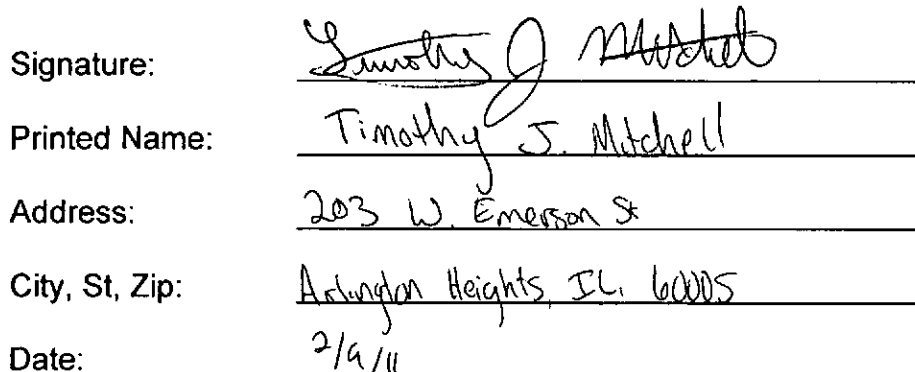 Signature: Timothy J Mitchell
Printed Name: Timothy J. Mitchell
Address: 203 W. Emerson St
City, St, Zip: Arlington Heights, IL. 60005
Date: 2/9/11